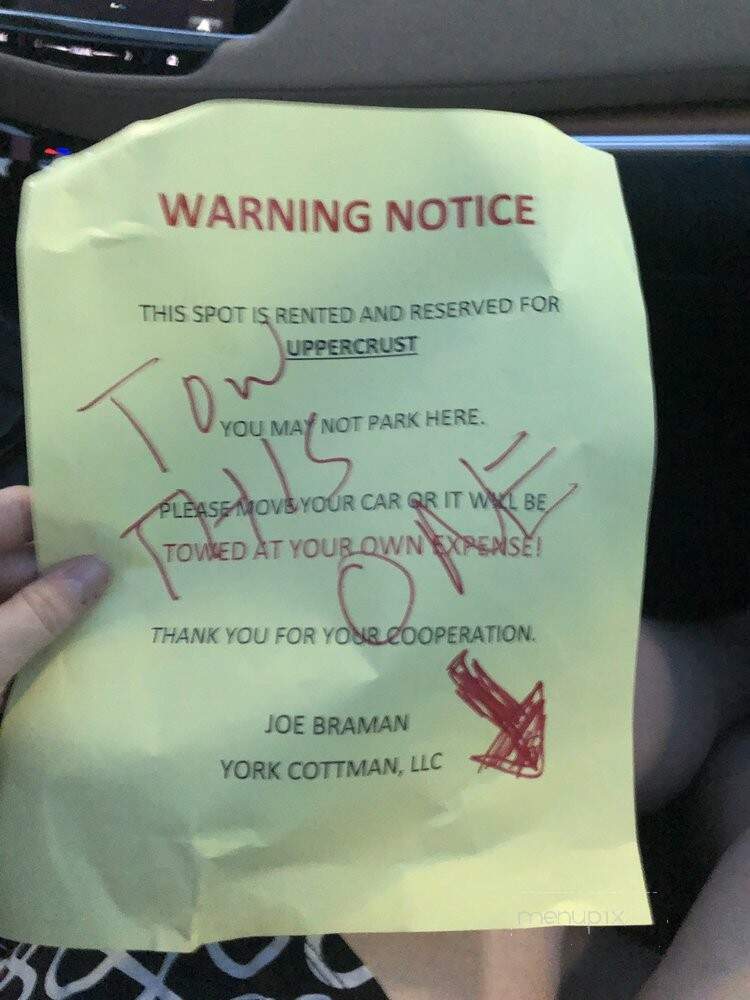 WARNING NOTICE
THIS SPOT IS RENTED AND RESERVED FOR
UPPERCRUST
TOW
YOU MAY NOT PARK HERE.
THIS
ONE
PLEASE MOVE YOUR CAR OR IT WILL BE
TOWED AT YOUR OWN EXPENSE!
THANK YOU FOR YOUR COOPERATION.
JOE BRAMAN
YORK COTTMAN, LLC
menupix